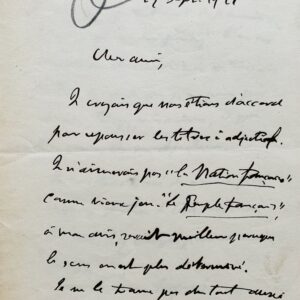 27 Sept. 1921
Cher ami,
Je croyais que nous étions d'accord
pour repousser les titres à adjectifs.
Je n'aimerais pas "la Nation française"
comme vieux jeu. "Le Peuple français",
à mon avis, serait meilleur parce que
le sens en est plus déterminé.
Je ne le trouve pas du tout